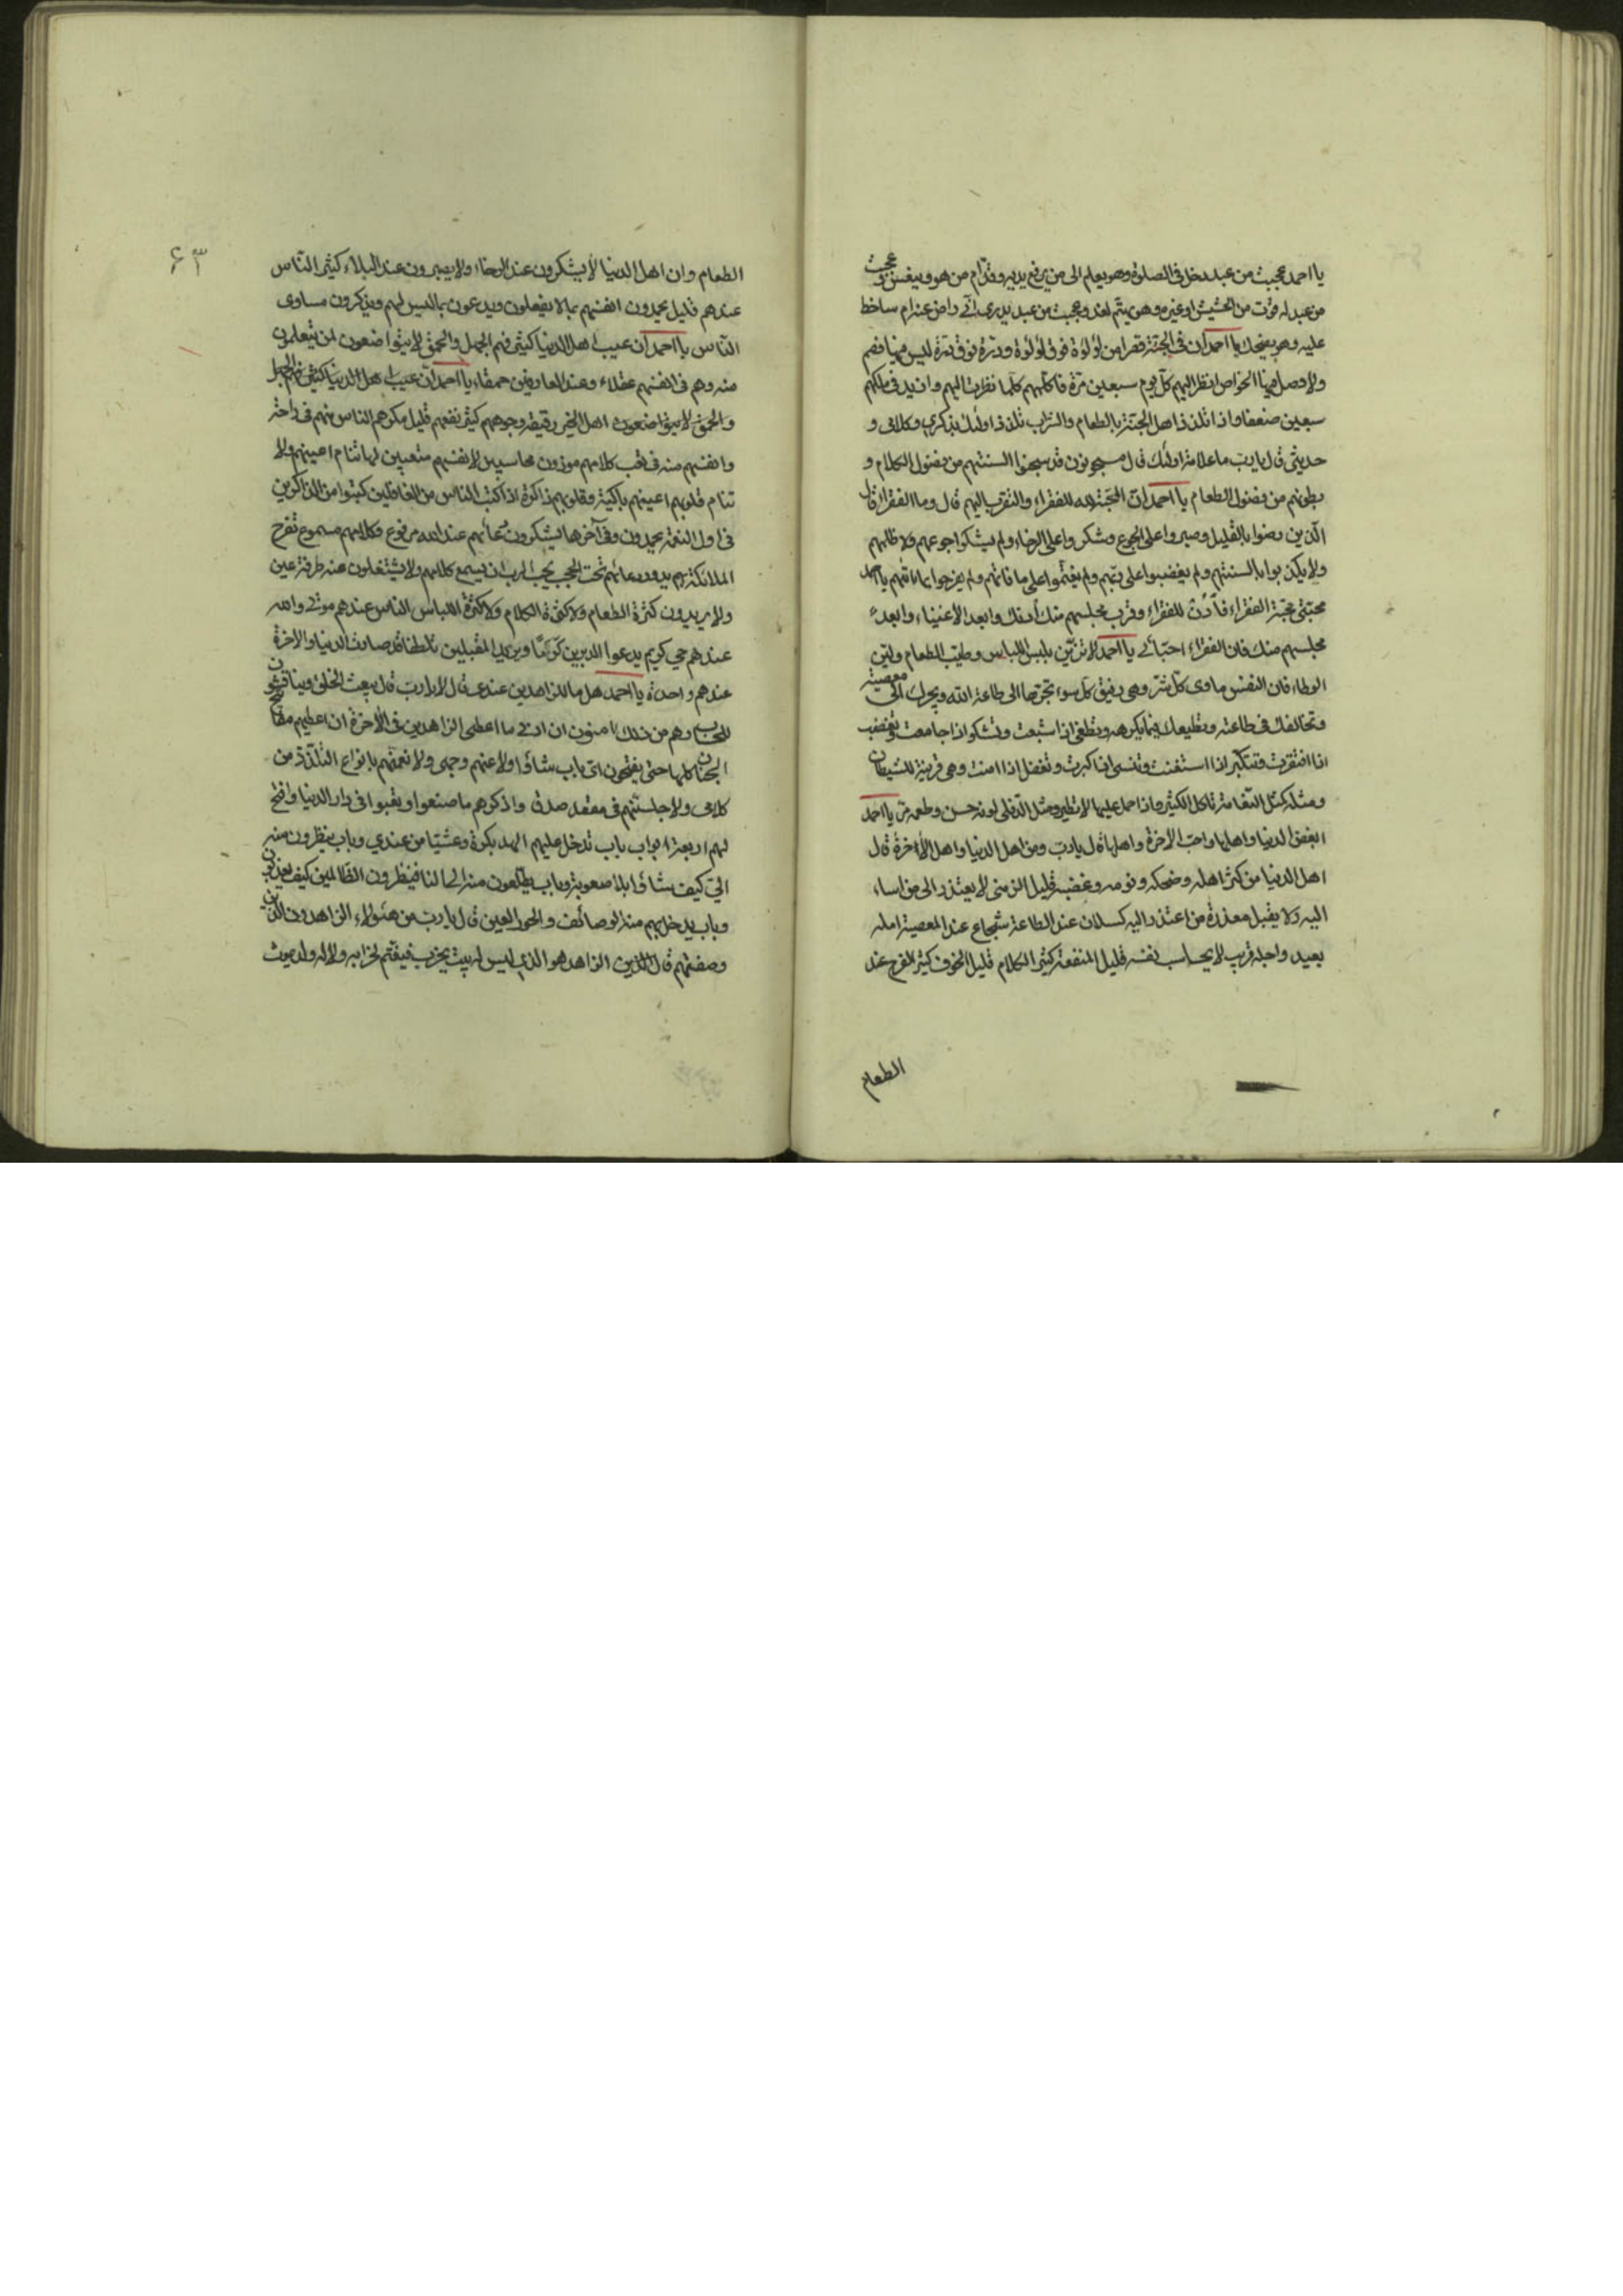 يا احمد عجبت من عبد دخل فى الصلوة وهو يعلم الى من يرفع يديه وقدّام من هو وينعس وعجبت
من عبد له قوت من الحشيش او غيره وهو يهتم لغد وعجبت من عبد لا يدرى انّى راض عنه ام ساخط
عليه وهو يضحك يا احمد ان فى الجنّة قصرا من لؤلؤة فوق لؤلؤة ودرّة فوق درّة ليس فيها فصم
ولا وصل فيها الخواص انظر اليهم كلّ يوم سبعين مرّة فاكلّمهم كلّما نظرت اليهم وازيد فى ملكهم
سبعين ضعفا واذا تلذذ اهل الجنّة بالطعام والشراب تلذذ اولئك بذكرى وكلامى و
حديثى قال يا ربّ ما علامة اولئك قال مسجونون قد سجنوا السنتهم من فضول الكلام و
بطونهم من فضول الطعام يا احمد انّ المحبّة لله للفقراء والتقرب اليهم قال وما الفقراء قال
الّذين رضوا بالقليل وصبروا على الجوع وشكروا على الرخاء ولم يشكوا جوعهم ولا ظماهم
ولم يكذبوا بالسنتهم ولم يغضبوا على ربّهم ولم يغتمّوا على ما فاتهم ولم يفرحوا بما اتاهم يا احمد
محبّتى محبّة الفقراء فأدن للفقراء وقرب مجلسهم منك أدنك وابعد الاغنياء وابعد
مجلسهم منك فان الفقراء احبّائى يا احمد لا تزيّن بلبس اللباس وطيب الطعام ولين
الوطاء فان النفس ماوى كلّ شرّ وهى رفيق كلّ سوء تجرّها الى طاعة الله وتجرك الى معصيته
وتخالفك فى طاعته وتطيعك فيما يكره وتطغى اذا شبعت وتشكو اذا جاعت وتغضب
اذا افتقرت وتتكبّر اذا استغنت وتنسى اذا كبرت وتغفل اذا امنت وهى قرينة للشيطان
ومثله كمثل النّعامة تاكل الكثير واذا حمل عليها لا تطير ومثل الدّفلى لونه حسن وطعمه مرّ يا احمد
ابغض الدنيا واهلها واحبّ الاخرة واهلها قال يا ربّ ومن اهل الدنيا واهل الاخرة قال
اهل الدنيا من كثر اكله وضحكه ونومه وغضبه قليل الرضى لا يعتذر الى من اساء
اليه ولا يقبل معذرة من اعتذر اليه كسلان عند الطاعة شجاع عند المعصية امله
بعيد واجله قريب لا يحاسب نفسه قليل المنفعة كثير الكلام قليل الخوف كثير الفرح عند
الطعام
٦٣
الطعام وان اهل الدنيا لا يشكرون عند الرخاء ولا يصبرون عند البلاء كثير النّاس
عندهم قليل يحمدون انفسهم بما لا يفعلون ويدعون بما ليس لهم ويذكرون مساوى
النّاس يا احمد ان عيب اهل الدنيا كثير فيهم الجهل والحمق لا يتواضعون لمن يتعلمون
منه وهم فى انفسهم عقلاء وعند العارفين حمقاء يا احمد انّ عيب اهل الدنيا كثير فيهم الجهل
والحمق لا يتواضعون اهل الخير رقيقة وجوههم كثير نفعهم قليل مكرهم الناس منهم فى راحة
وانفسهم منه فى تعب كلامهم موزون محاسبين لانفسهم متعبين لها تنام اعينهم ولا
تنام قلوبهم اعينهم باكية وقلوبهم ذاكرة اذا كتب الناس من الغافلين كتبوا من الذاكرين
فى اول النعمة يحمدون وفى آخرها يشكرون دعائهم عند الله مرفوع وكلامهم مسموع تفرح
الملائكة بهم يدور دعائهم تحت الحجب يحبّ الرب ان يسمع كلامهم ولا يشتغلون عنه طرفة عين
ولا يريدون كثرة الطعام ولا كثرة الكلام ولا كثرة اللباس الناس عندهم موتى والله
عندهم حى كريم يدعوا المدبرين كرمًا ويريد المقبلين تلطفا قد صارت الدنيا والاخرة
عندهم واحدة يا احمد هل ما للزاهدين عندى قال لا يا ربّ قال يبعث الخلق ويناقشون
الحساب وهم من ذلك امنون ان ادنى ما اعطى الزاهدين فى الاخرة ان اعطيهم مفاتيح
الجنان كلها حتى يفتحون اىّ باب شاؤا ولا احجب عنهم وجهى ولا نعمنّهم بانواع التلذذ من
كلامى ولا جلسنّهم فى مقعد صدق واذكرهم ما صنعوا وتعبوا فى دار الدنيا وافتح
لهم اربعة ابواب باب تدخل عليهم الهدايا بكرة وعشيّا من عندى وباب ينظرون منه
الىّ كيف شاؤا بلا صعوبة وباب يطلعون منه الى النار فينظرون الظالمين كيف يعذبون
وباب يدخل عليهم منه الوصائف والحور العين قال يا ربّ من هؤلاء الزاهدون الذين
وصفتهم قال الزاهد هو الذى ليس له بيت يخرب فيغتم لخرابه ولا له ولد يموت